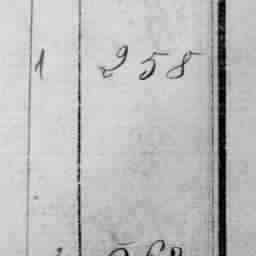 1 258